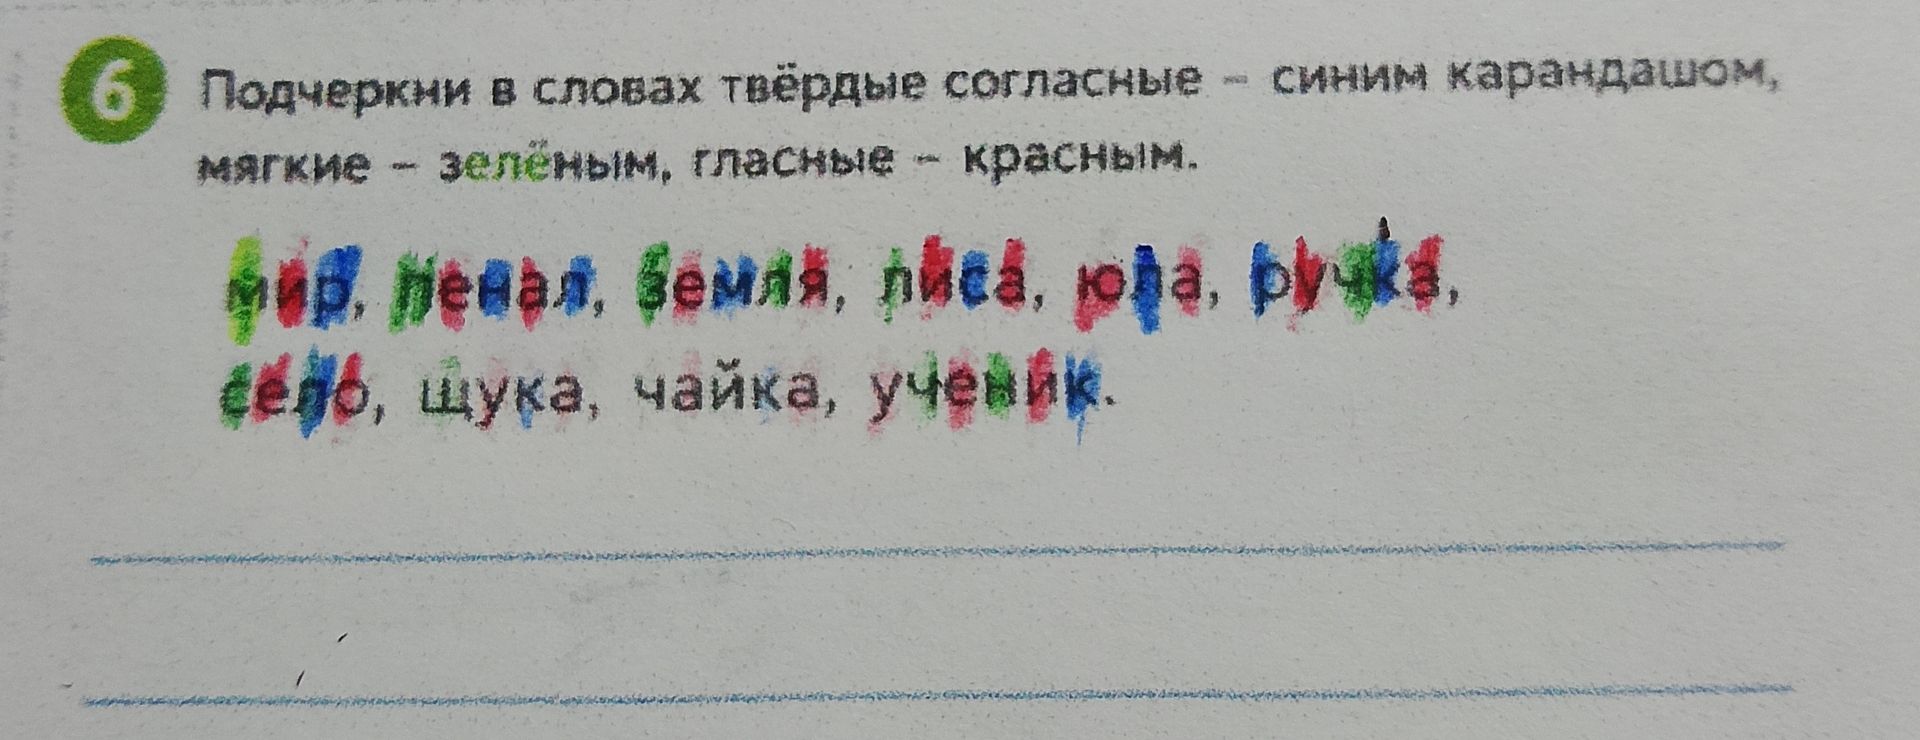 6
Подчеркни в словах твёрдые согласные – синим карандашом,
мягкие – зелёным, гласные – красным.
мир, пенал, земля, лиса, юла, ручка,
село, щука, чайка, ученик.